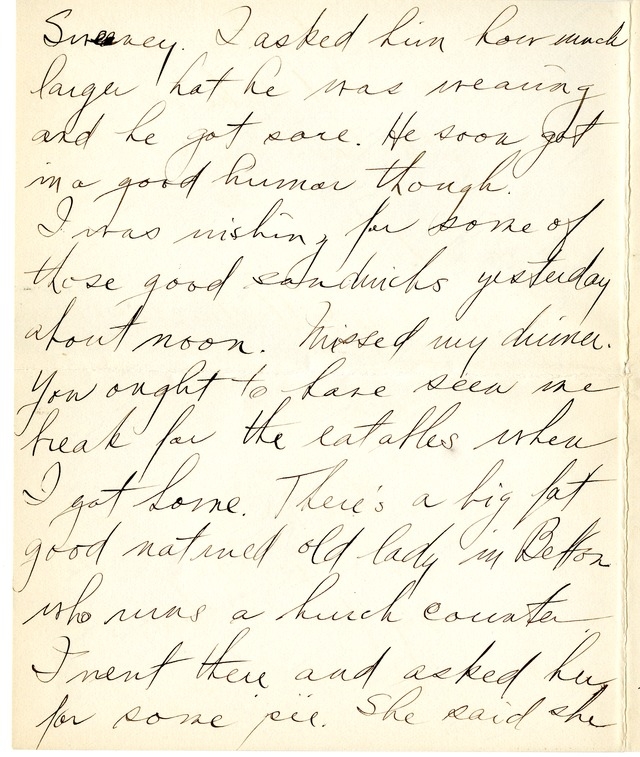 Sweeney. I asked him how much
larger hat he was wearing
and he got sore. He soon got
in a good humor though.
I was wishing for some of
those good sandwichs yesterday
about noon. Missed my dinner.
You ought to have seen me
break for the eatables when
I got home. There's a big fat
good natured old lady in Belton
who runs a lunch counter
I went there and asked her
for some pie. She said she